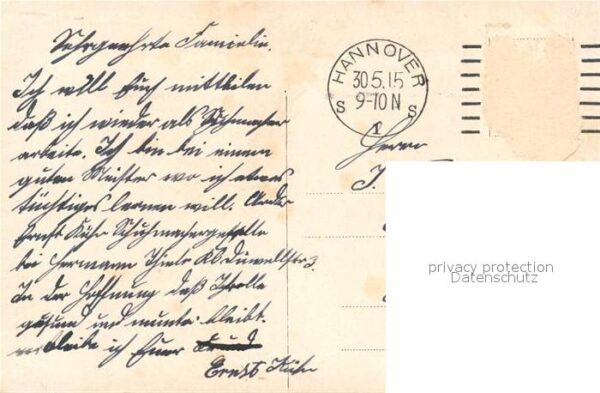 Sehrgeehrte Familie.
Ich will Euch mittheilen
daß ich wieder als Schumacher
arbeite. Ich bin bei einem
guten Meister wo ich etwas
tüchtiges lernen will.
Ernst Kühn Schuhmachergeselle
bei Hermann Thiele Kl. Düwellstr 3.
In der Hoffnung daß Ihr alle
gesund und munter bleibt.
verbleibe ich Euer
Ernst Kühn
HANNOVER
30.5.15
9-10 N
S 1 S
Herrn
J.
privacy protection
Datenschutz